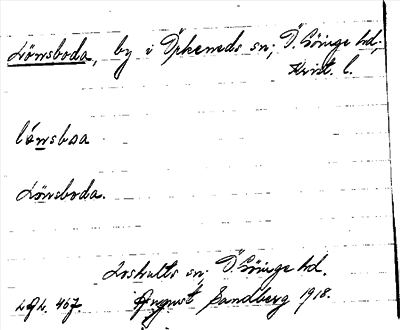 Lönsboda, by i Örkeneds sn; Ö. Göinge hd;
Krist. l.
lónsboa
Lönsboda.
Loshults sn; Ö. Göinge hd.
August Sandberg 1918.